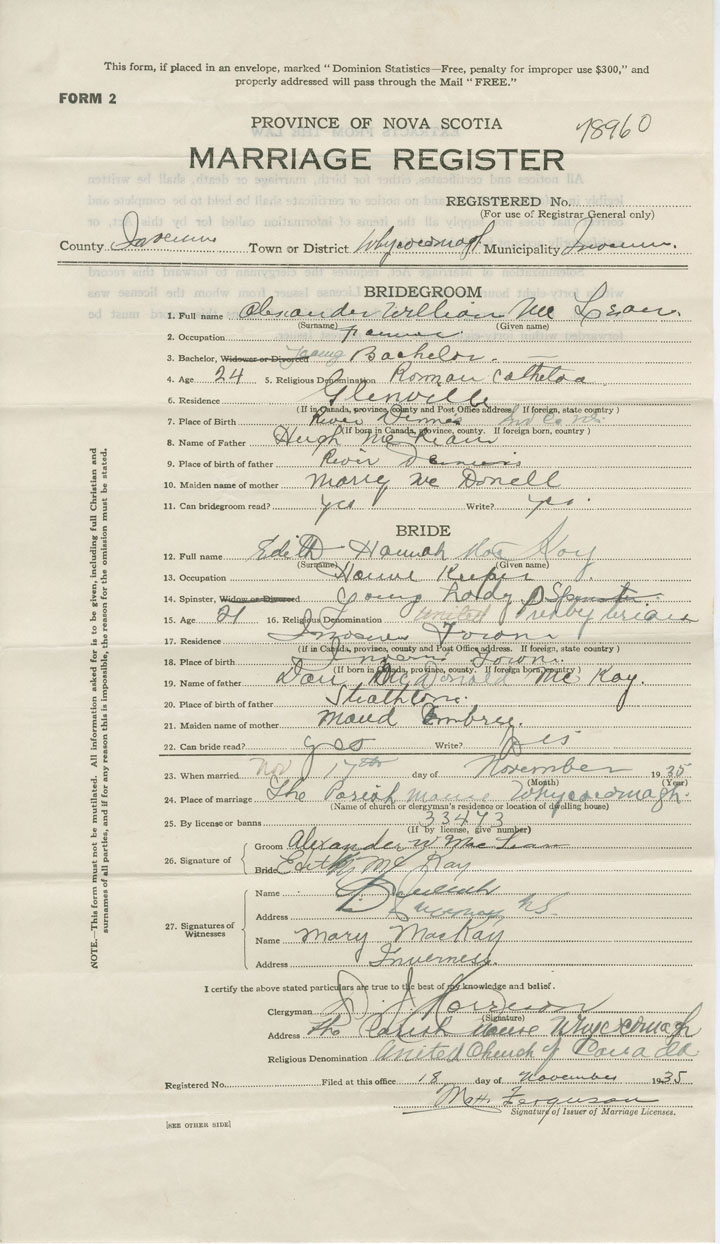 This form, if placed in an envelope, marked "Dominion Statistics—Free, penalty for improper use $300," and
properly addressed will pass through the Mail "FREE."
FORM 2
PROVINCE OF NOVA SCOTIA
78960
MARRIAGE REGISTER
REGISTERED No.
(For use of Registrar General only)
County Inverness Town or District Whycocomagh Municipality Inverness
BRIDEGROOM
1. Full name Alexander William Mc Lean
(Surname) (Given name)
2. Occupation farmer
3. Bachelor, Widower or Divorced young Bachelor.
4. Age 24 5. Religious Denomination Roman
6. Residence Glenville
(If in Canada, province, county and Post Office address. If foreign, state country)
7. Place of Birth River Dennis
(If born in Canada, province, county. If foreign born, country)
8. Name of Father Hugh Mc Lean
9. Place of birth of father River Dennis
10. Maiden name of mother Marry Mc Donell
11. Can bridegroom read? yes Write? yes.
BRIDE
12. Full name Edith Hannah Mac Kay
(Surname) (Given name)
13. Occupation House Keeper
14. Spinster, Widow or Divorced young Lady Spinster
15. Age 21 16. Religious Denomination United Presbyterian
17. Residence Inverness Town
(If in Canada, province, county and Post Office address. If foreign, state country)
18. Place of birth Inverness Town.
(If born in Canada, province, county. If foreign born, country)
19. Name of father Dan McDonald Mc Kay.
20. Place of birth of father Strathlorne
21. Maiden name of mother Maud Embree.
22. Can bride read? yes Write? yes
23. When married Nov 17th day of November 1935
(Month) (Year)
24. Place of marriage The Parish Manse Whycocomagh.
(Name of church or clergyman's residence or location of dwelling house)
25. By license or banns 33473
(If by license, give number)
26. Signature of
Groom Alexander W MacLean
Bride Edith Mc Kay
27. Signatures of Witnesses
Name
Address N.S.
Name Mary MacKay
Address Inverness
I certify the above stated particulars are true to the best of my knowledge and belief.
Clergyman
(Signature)
Address The Parish Manse Whycocomagh
Religious Denomination United Church of Canada
Registered No. Filed at this office 18 day of November 1935
Ferguson
Signature of Issuer of Marriage Licenses.
[SEE OTHER SIDE]
NOTE.—This form must not be mutilated. All information asked for is to be given, including full Christian and
surnames of all parties, and if for any reason this is impossible, the reason for the omission must be stated.